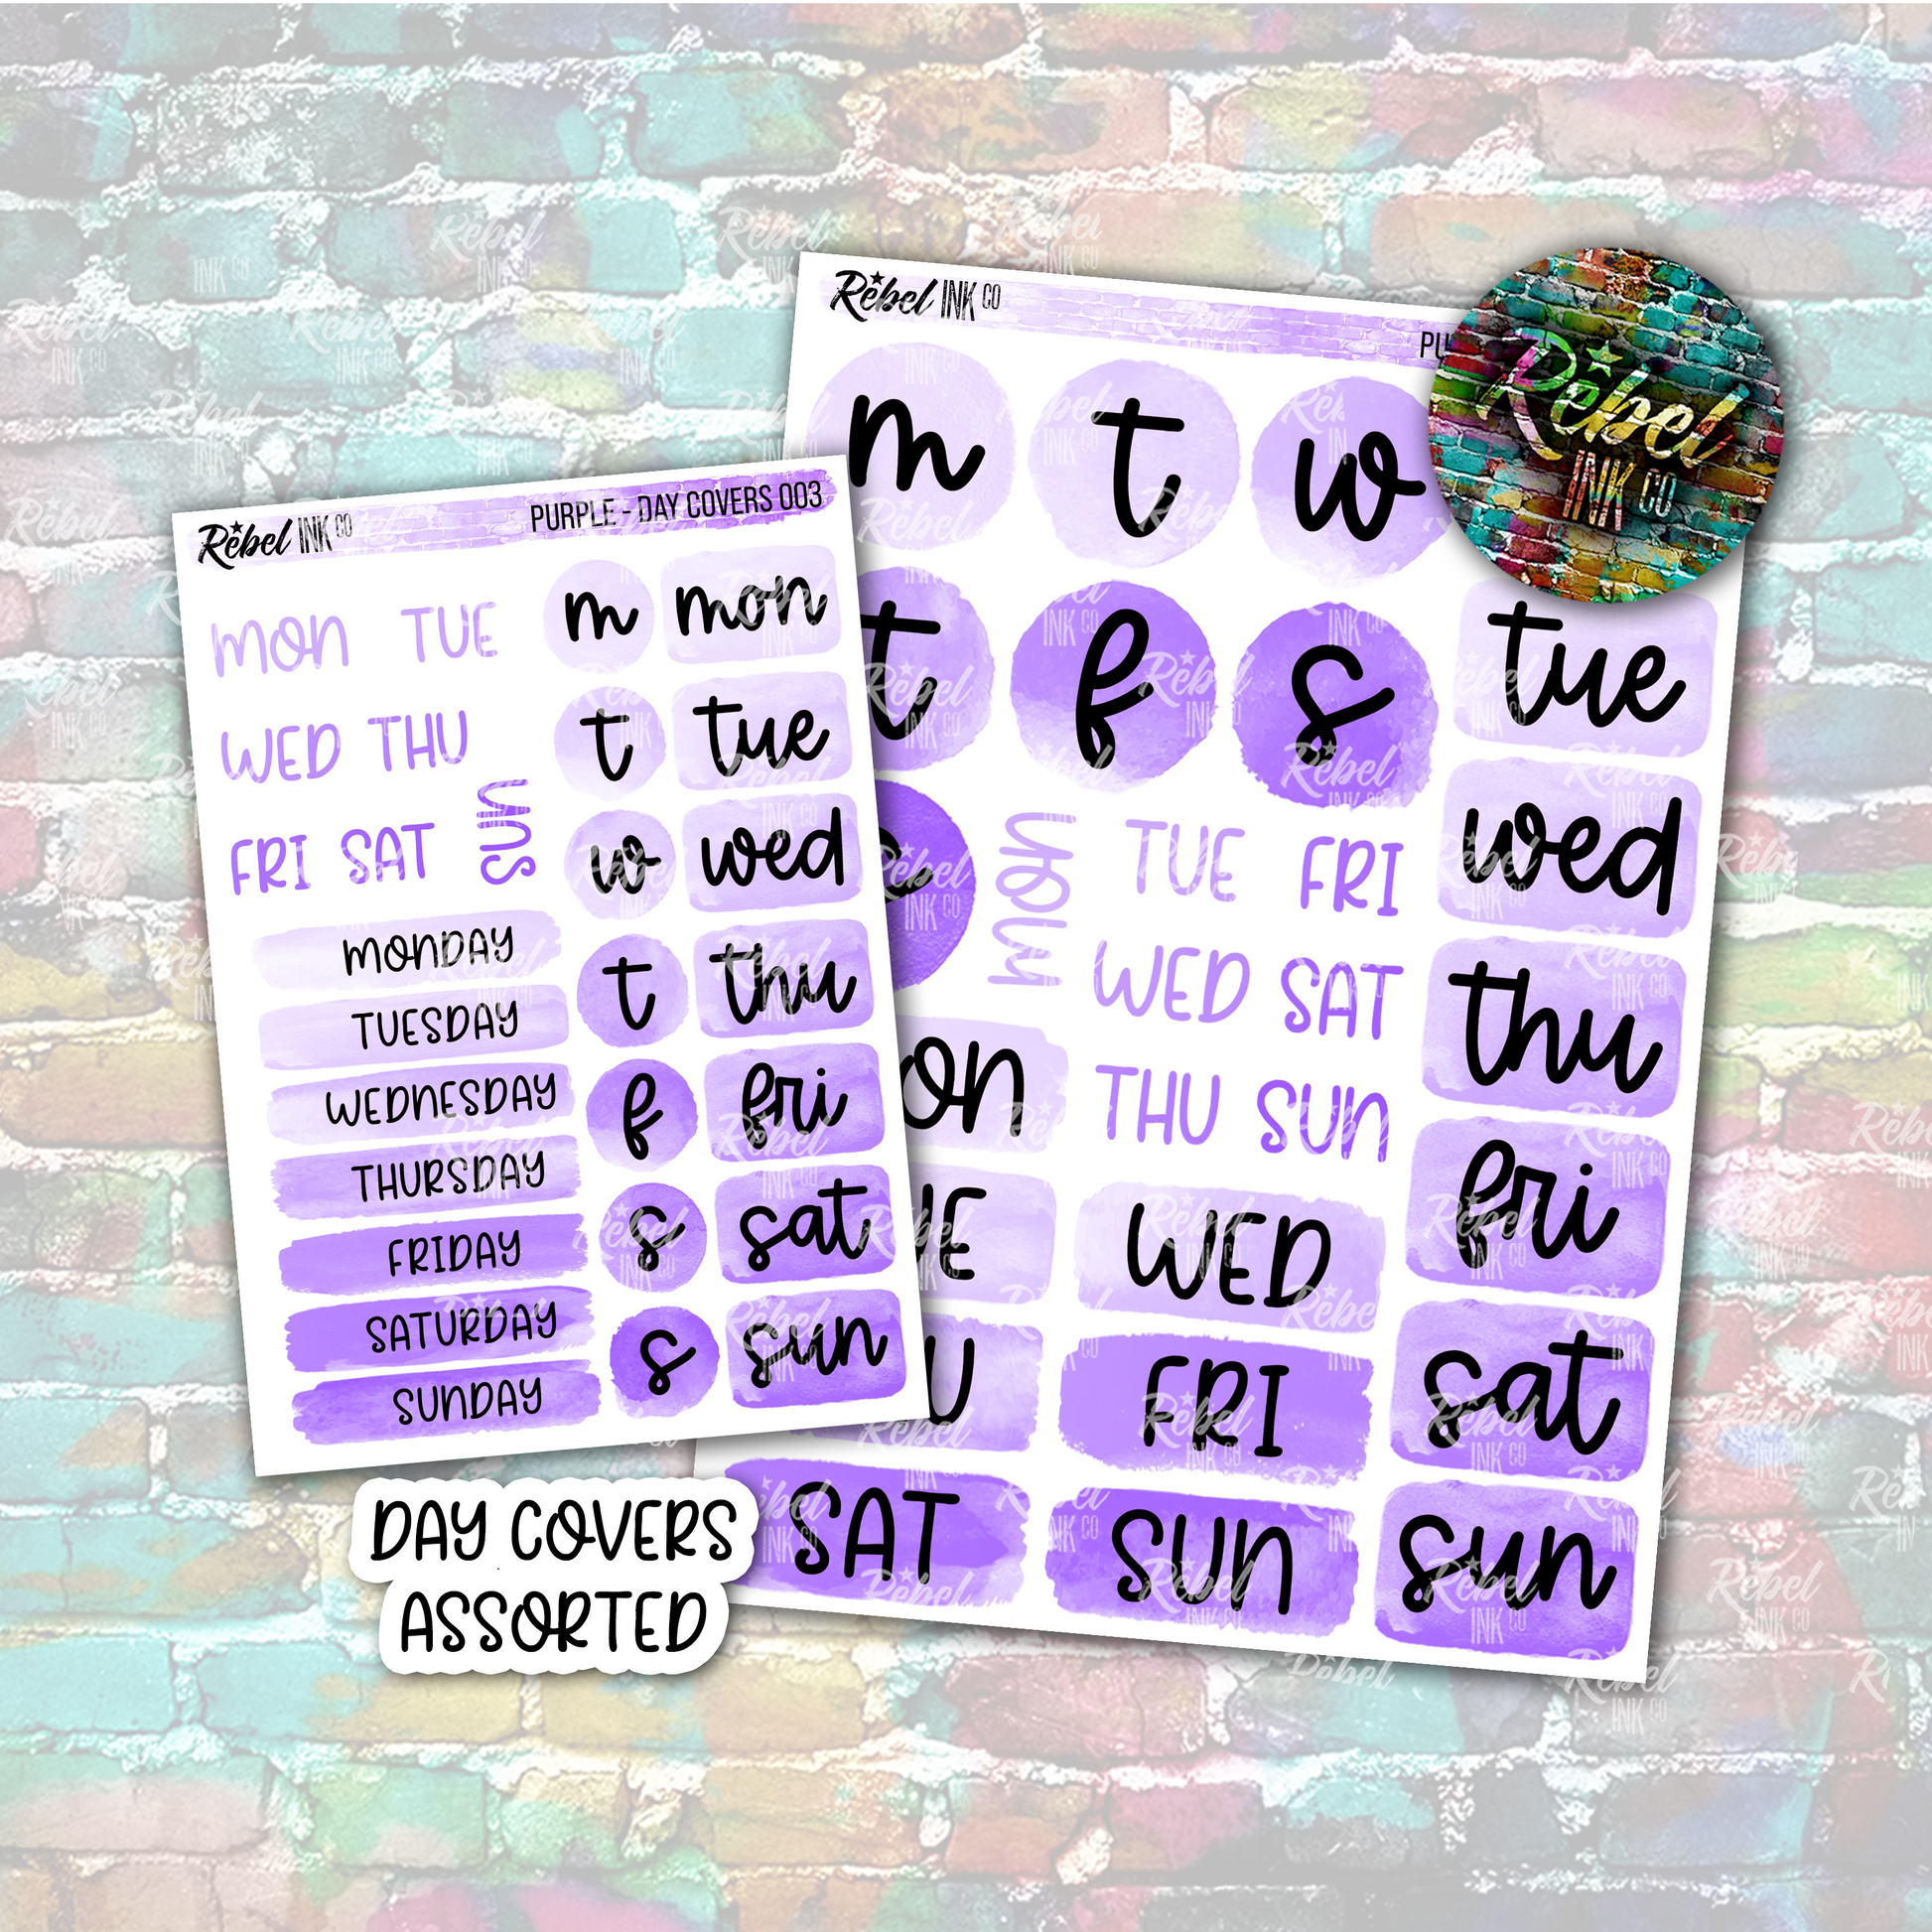 Rebel INK CO
PURPLE - DAY COVERS 003
MON TUE
WED THU
FRI SAT SUN
MONDAY
TUESDAY
WEDNESDAY
THURSDAY
FRIDAY
SATURDAY
SUNDAY
m mon
t tue
w wed
t thu
f fri
s sat
s sun
Rebel INK CO
PU
m t w
t f s
tue
wed
thu
fri
sat
sun
MON TUE FRI
WED SAT
THU SUN
ON
UE WED
U FRI
SAT SUN
Rebel
INK CO
DAY COVERS
ASSORTED